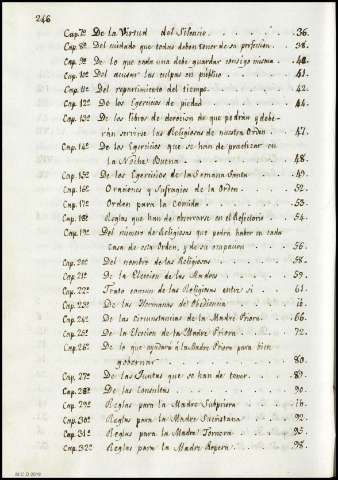 246
Cap. 7º De la Virtud del Silencio . . . . . . . 36.
Cap. 8º Del cuidado que todas deben tener de su perfeccion . . 38.
Cap. 9º De lo que cada una debe guardar consigo misma . . 40.
Cap. 10º Del acusar las culpas en público . . . . . 41.
Cap. 11º Del repartimiento del tiempo . . . . . . 42.
Cap. 12º De los Egercicios de piedad . . . . . . 44.
Cap. 13º De los libros de devocion de que podrán y debe-
rán servirse las Religiosas de nuestra Orden . . 47.
Cap. 14º De los Egercicios que se han de practicar en
la Noche Buena . . . . . . . . 48.
Cap. 15º De los Egercicios de la Semana Santa . . . . 49.
Cap. 16º Oraciones y Sufragios de la Orden . . . . 52.
Cap. 17º Orden para la Comida . . . . . . . 53.
Cap. 18º Reglas que han de observarse en el Refectorio . . 54.
Cap. 19º Del número de Religiosas que podrá haber en cada
Casa de esta Orden, y de su ocupacion . . . 56.
Cap. 20º Del nombre de las Religiosas . . . . . 58.
Cap. 21º De la Eleccion de las Madres . . . . . 59.
Cap. 22º Trato comun de las Religiosas entre sí . . . 61.
Cap. 23º De las Hermanas de Obediencia . . . . .
Cap. 24º De las circunstancias de la Madre Priora . . . 66.
Cap. 25º De la Eleccion de la Madre Priora . . . . 72.
Cap. 26º De lo que ayudará á la Madre Priora para bien
gobernar . . . . . . . . . 80.
Cap. 27º De las Juntas que se han de tener . . . . 89.
Cap. 28º De las Consultas . . . . . . . . 90.
Cap. 29º Reglas para la Madre Subpriora . . . .
Cap. 30º Reglas para la Madre Sacristana . . . . 92.
Cap. 31º Reglas para la Madre Tornera . . . . . 95.
Cap. 32º Reglas para la Madre Ropera . . . . . 98.